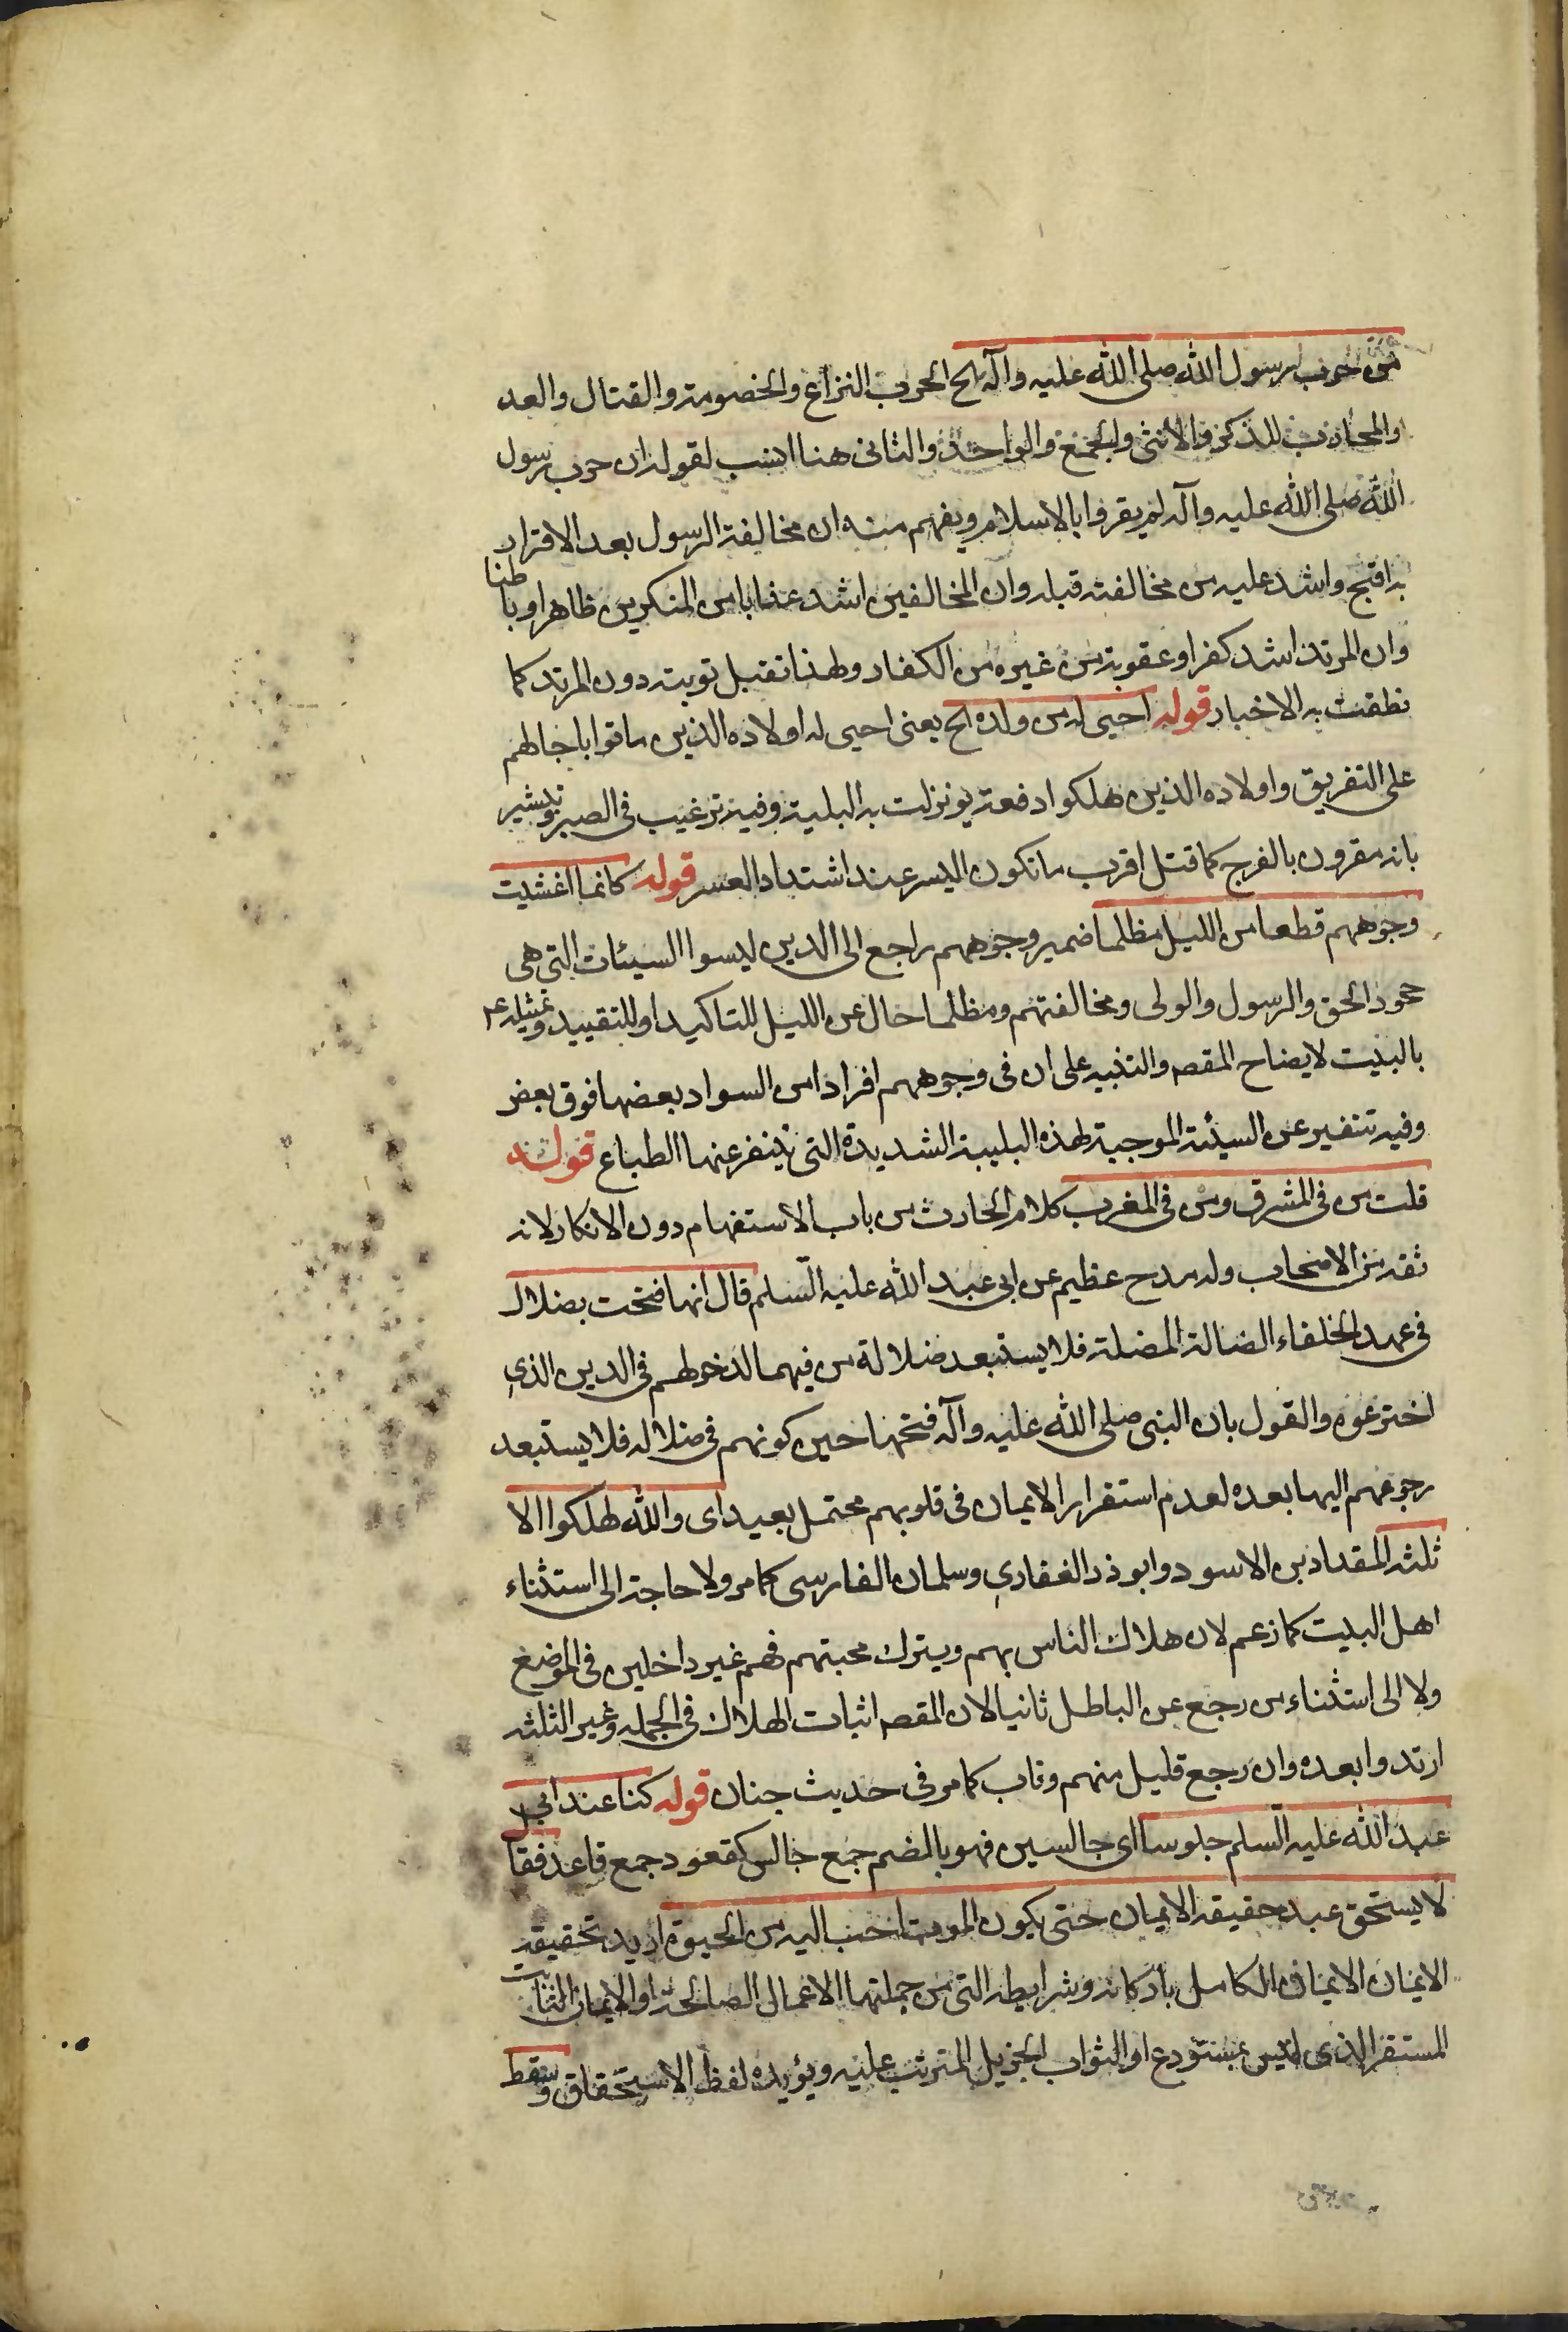 من حرب رسول الله صلى الله عليه وآله الخ الحرب النزاع والخصومة والقتال والعد
والمحارب للذكر والانثى والجمع والواحد والثانى هنا انسب لقوله ان حرب رسول
الله صلى الله عليه وآله لم يقروا بالاسلام ويفهم منه ان مخالفة الرسول بعد الاقرار
به اقبح واشد عليه من مخالفته قبله وان المخالفين اشد عذابا من المنكرين ظاهرا وباطنا
وان المرتد اشد كفرا وعقوبة من غيره من الكفار ولهذا تقبل توبته دون المرتد كما
نطقت به الاخبار قوله احيى له من ولده الخ يعنى احيى له اولاده الذين ماتوا باجالهم
على التفريق واولاده الذين هلكوا دفعة يو نزلت به البلية وفيه ترغيب فى الصبر وتبشير
بانه مقرون بالفرج كما قتل اقرب ما تكون اليسر عند اشتداد العسر قوله كانما اغشيت
وجوههم قطعا من الليل مظلما ضمير وجوههم راجع الى الذين ليسوا السيئات التى هى
جحود الحق والرسول والولى ومخالفتهم ومظلما حال عن الليل للتاكيد او للتقييد وتمثيله ع
بالبيت لايضاح المقصه والتنبيه على ان فى وجوههم افرادا من السواد بعضها فوق بعض
وفيه تنفير عن السيئة الموجبة لهذه البليبة الشديدة التى يتنفر عنها الطباع قوله
قلت من فى المشرق ومن فى المغرب كلام الحارث من باب الاستفهام دون الانكار لانه
ثقه من الاصحاب وله مدح عظيم عن ابى عبد الله عليه السلم قال انها فتحت بضلال
فى عهد الخلفاء الضالة المضلة فلا يستبعد ضلالة من فيهما لدخولهم فى الدين الذي
اخترعوه والقول بان النبى صلى الله عليه وآله فتحها حين كونهم فى ضلاله فلا يستبعد
رجوعهم اليها بعده لعدم استقرار الايمان فى قلوبهم محتمل بعيد اى والله لهلكوا الا
ثلثه المقداد بن الاسود وابو ذر الغفاري وسلمان الفارسى كما مر ولا حاجة الى استثناء
اهل البيت كما زعم لان هلاك الناس بهم ويترك محبتهم فهم غير داخلين فى الموضع
ولا الى استثناء من رجع عن الباطل ثانيا لان المقصه اثبات الهلاك فى الجمله وغير الثلثه
ارتدوا بعده وان رجع قليل منهم وتاب كما مر فى حديث جنان قوله كنا عند ابى
عبد الله عليه السلم جلوسا اى جالسين فهو بالمضم جمع جالس كقعود جمع قاعد فقا
لا يستحق عبد حقيقه الايمان حتى يكون الموت احب اليه من الحيوة اريد تحقيقه
الايمان الايمان الكامل باركانه وشرايطه التى من جملتها الاعمال الصالحة او الايمان الثابت
المستقر الذى ليس بمستودع او الثواب الجزيل المترتب عليه ويؤيده لفظ الاستحقاق وسقط